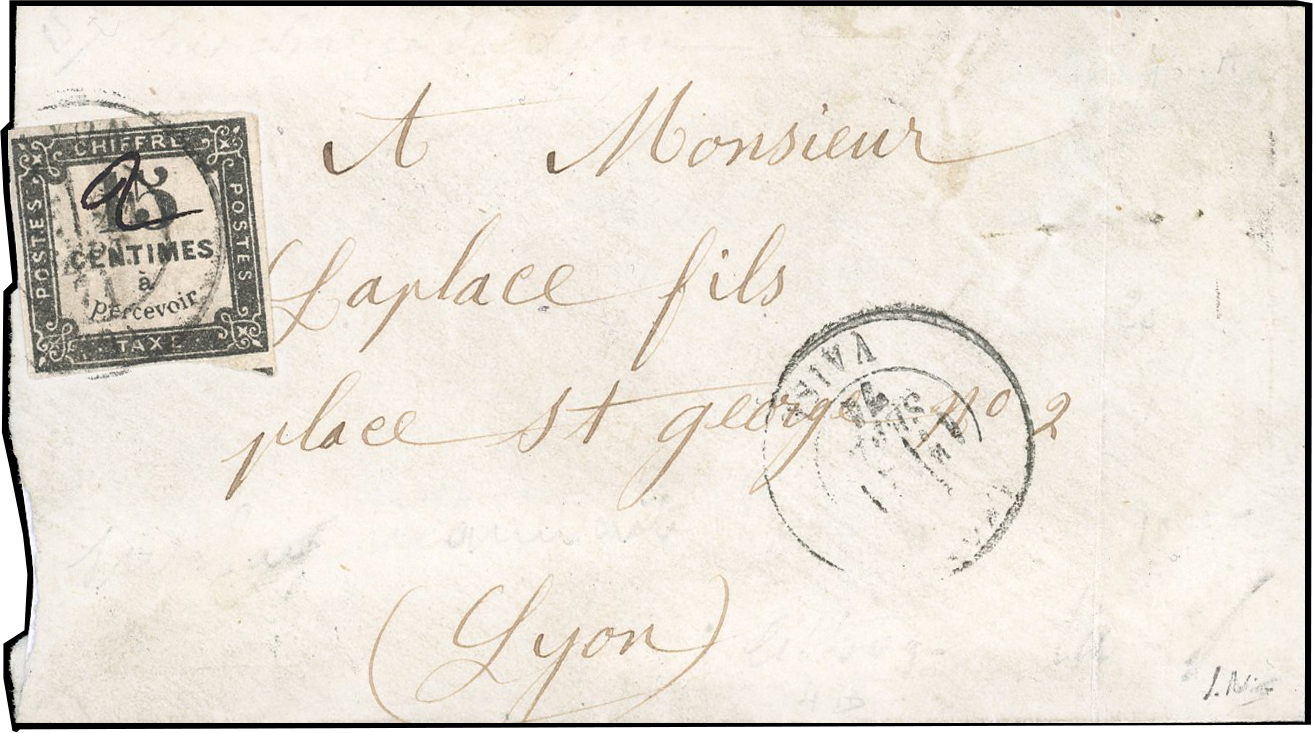 A Monsieur
Laplace fils
place st george no 2
(Lyon)
CHIFFRE
POSTES
POSTES
15
CENTIMES
à
percevoir
TAXE
VAISE